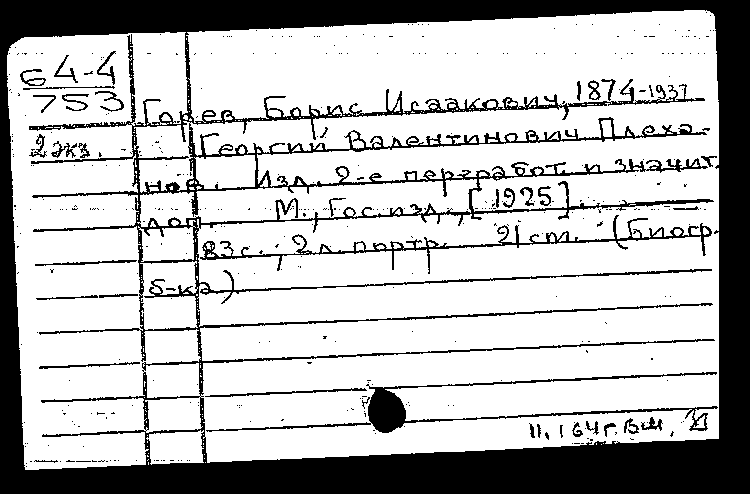 64-4
753
Горев, Борис Исаакович, 1874-1937
2 экз.
Георгий Валентинович Плеха-
нов. Изд. 2-е переработ. и значит.
доп. М., Гос. изд., [1925].
83 с.; 2 л. портр. 21 ст. (Биогр.
б-ка)
II, 164 г. ВМ,